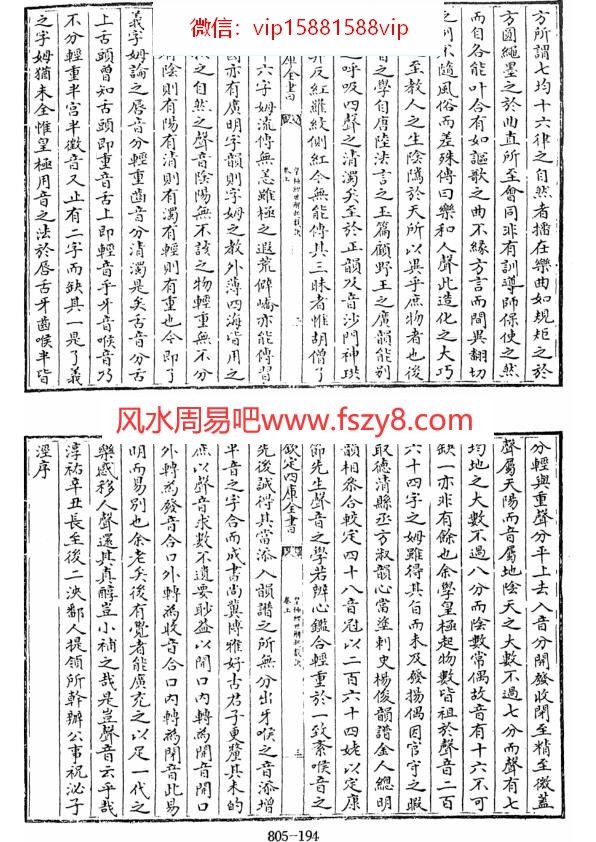 微信：vip15881588vip
方所謂七均十六律之自然者播在樂曲如規矩之於
方圓繩墨之於曲直所至會同非有訓導師保使之然
而自各能叶合有如謳歌之曲不緣方言而間異翻切
之列不隨風俗而差殊傳曰樂和人聲此造化之大巧
至教人之生陰隲於天所以異乎庶物者也後
音之學自唐陸法言之玉篇顧野王之廣韻能別
之呼吸四聲之清濁矣至於正韻反音沙門神珙
反紅羅紋側紅令無能傳其三昧者惟胡僧了
庫全書
卷上
二
十六字母流傳無恙雖極之遐荒僻嶠亦能傳習
國亦有廣明字韻則字母之教外薄四海皆用之
之自然之聲音陰陽無不該之物輕重無不分
有陰則有陽有清則有濁有輕則有重也今即了
義字母論之唇音分輕重齒音分清濁是矣舌音分舌
上舌頭曾知舌頭即重音舌上即輕音乎牙音喉音乃
不分輕重半宮半徵音又止有二字而缺其一是了義
之字母猶未全惟皇極用音之法於唇舌牙齒喉半皆
风水周易吧www.fszy8.com
分輕與重聲分平上去入音分開發收閉至精至微蓋
聲屬天陽而音屬地陰天之大數不過七分而聲有七
均地之大數不過八分而陰數常偶故音有十六不可
缺一亦非有餘也余學皇極起物數皆祖於聲音二百
六十四字之姆雖得其自而未及發揚偶因官守之暇
取德清縣丞方淑韻心當塗刺史楊俊韻譜金人總明
韻相參合較定四十八音冠以二百六十四姥以定康
節先生聲音之學若辨心鑑合輕重於一致紊喉音之
欽定四庫全書
卷上
三
先後誠得其當添入韻譜之所無分出牙喉之音添增
半音之字合而成書尚冀博雅好古君子更釐其未的
庶以聲音求數不遺要眇益以開口內轉為開音開口
外轉為發音合口外轉為收音合口內轉為閉音此易
明而易別也余老矣後有覺者能廣充之以足一代之
樂感移人聲還其真醇豈小補之哉是豈聲音云乎哉
淳祐辛丑長至後二泱鄱人提領所幹辦公事祝泌子
涇序
805—194